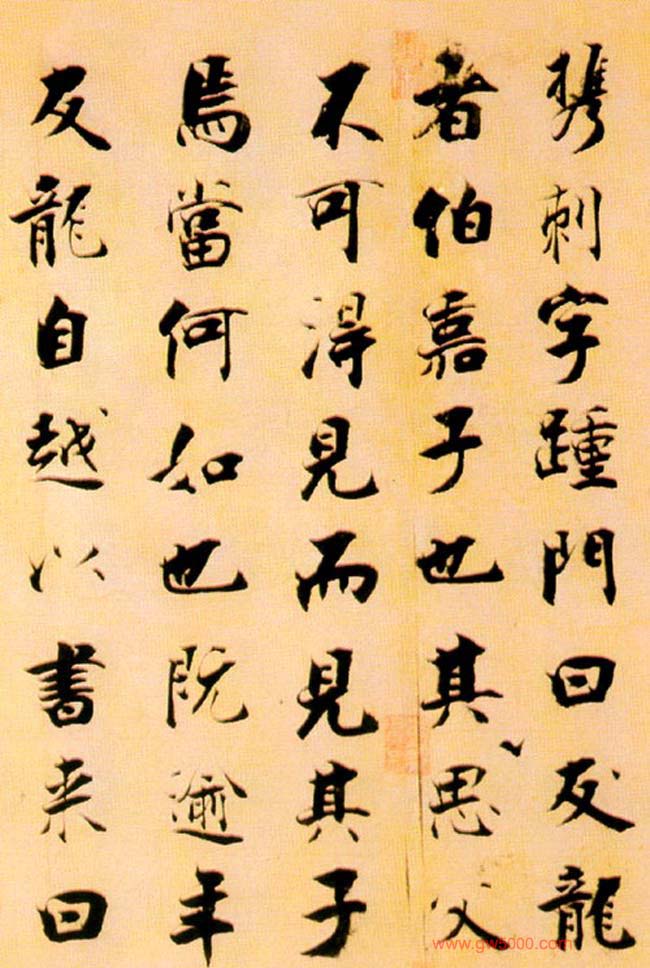 攜刺字踵門曰友龍
者伯嘉子也其思父
不可得見而見其子
焉當何如也既逾年
友龍自越以書来曰
www.gw5000.com